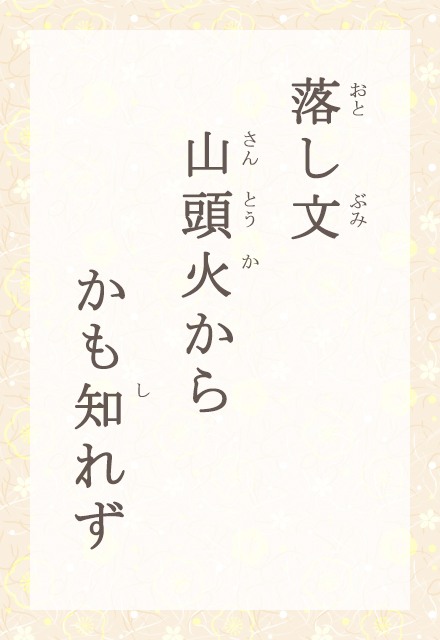 落し文
おと ぶみ
山頭火から
さん とう か
かも知れず
し